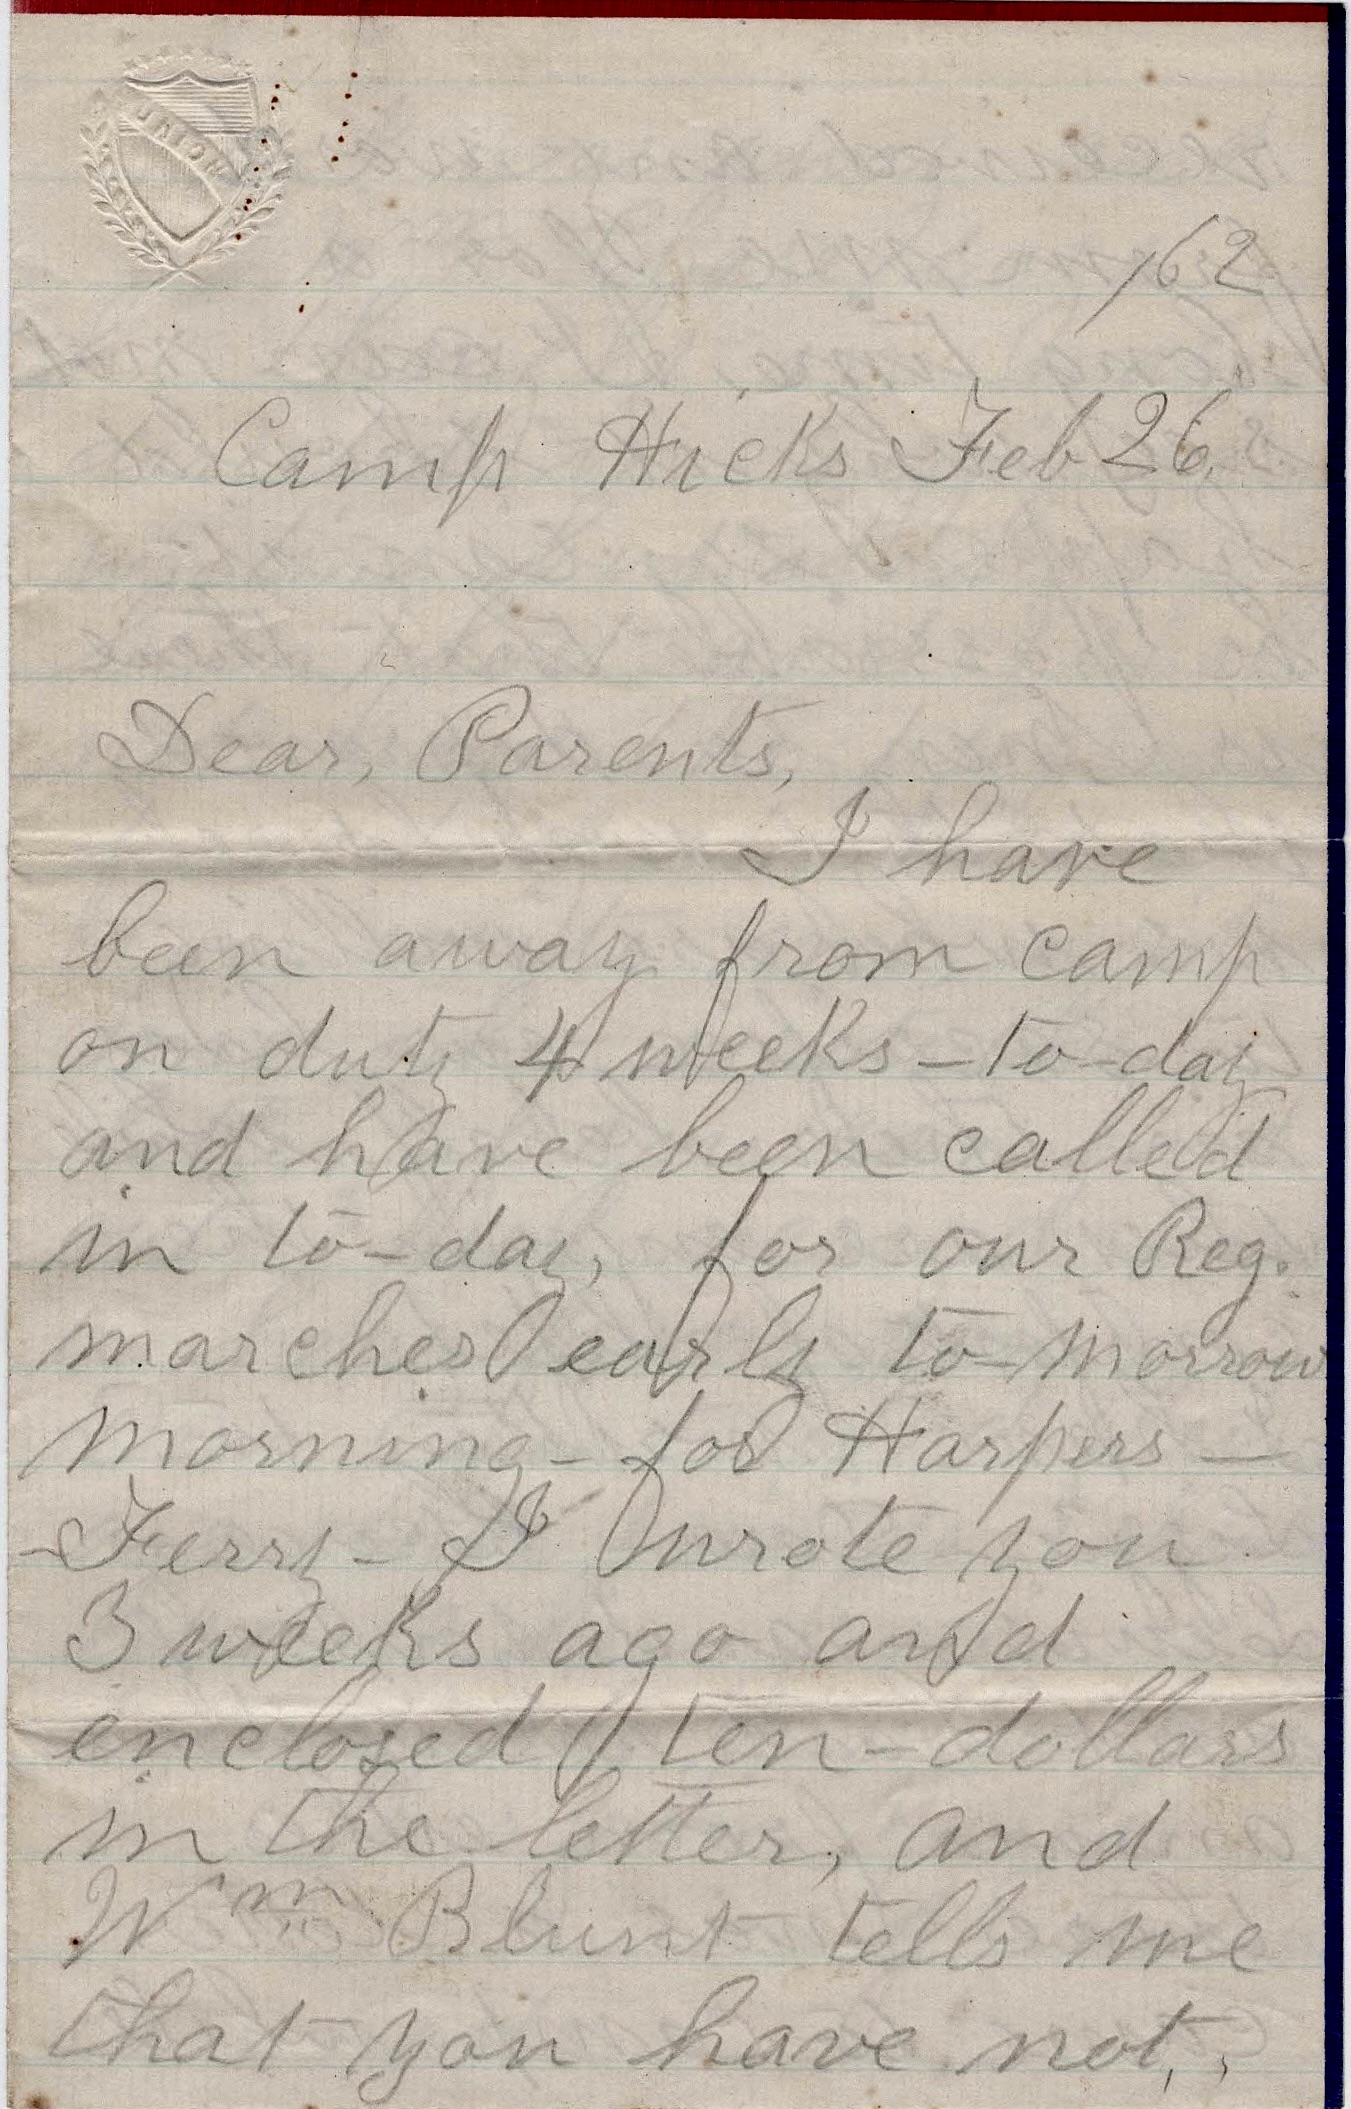 UNION
/62
Camp Hicks Feb 26.
Dear, Parents,
I have
been away from camp
on duty 4 weeks-to-day
and have been called
in to-day, for our Reg.
marches early to-morrow
morning- for Harpers-
-Ferry- I wrote you
3 weeks ago and
enclosed ten-dollars
in the letter, and
Wm Blunt tells me
that you have not,